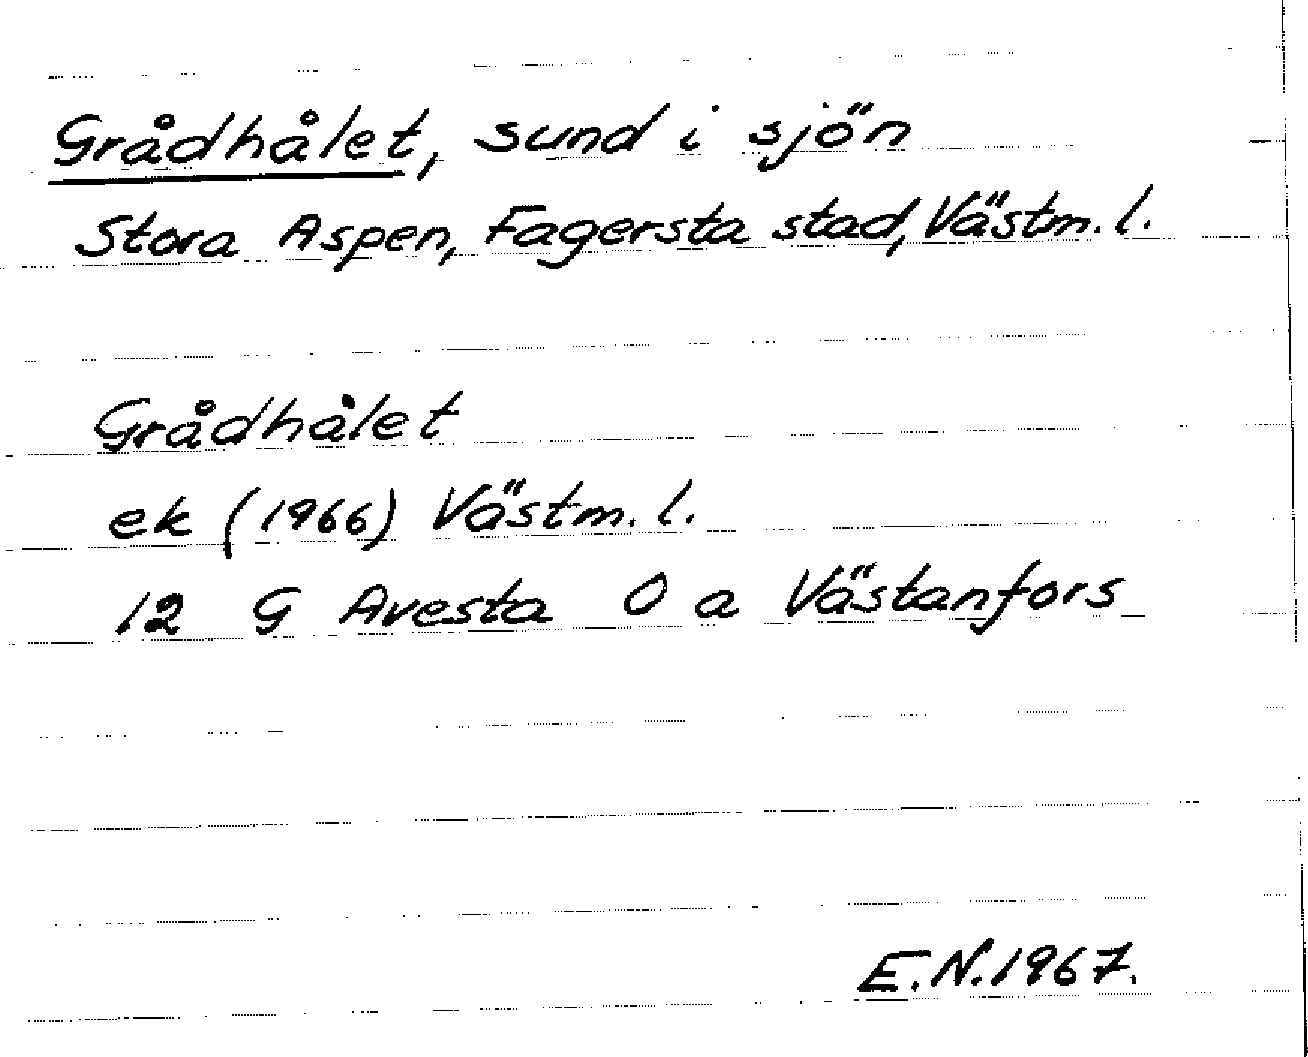 Grådhålet, sund i sjön
Stora Aspen, Fagersta stad, Västm. l.
Grådhålet
ek (1966) Västm. l.
12 G Avesta O a Västanfors
E.N.1967.